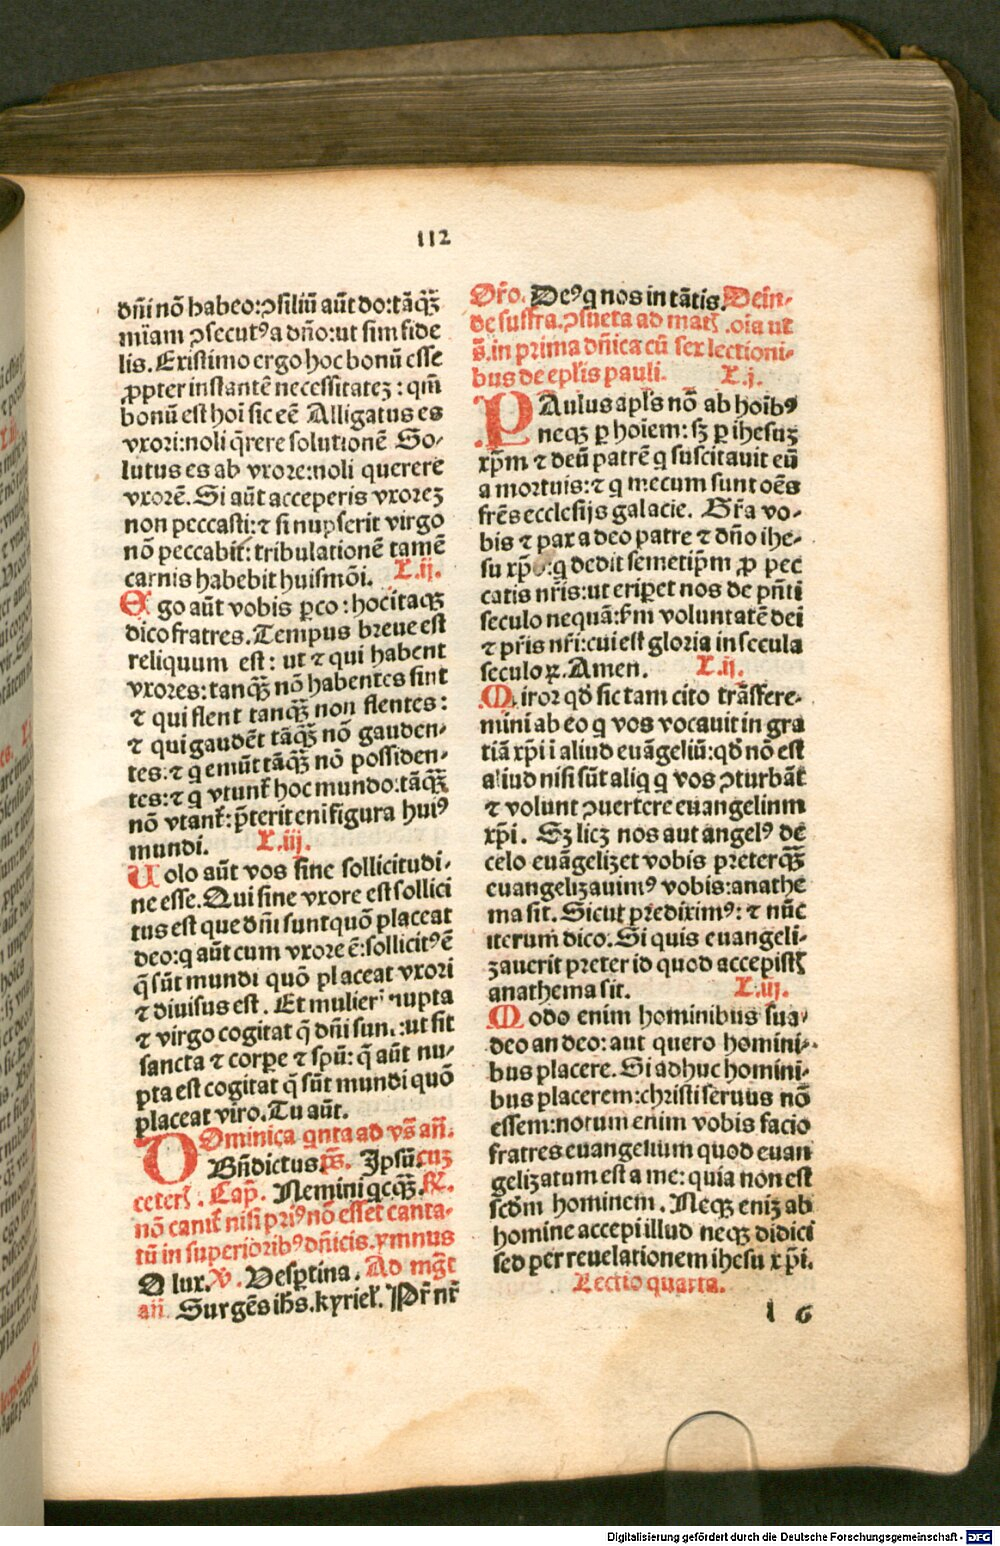 112
dñi nõ habeo:ꝯsiliũ aũt do:tãqꝫ̃
mĩam ꝯsecutꝰ a dño:ut sim fide
lis. Existimo ergo hoc bonũ esse
ꝓpter instantẽ necessitatez : qm̃
bonũ est hoĩ sic eẽ Alligatus es
vxori:noli q̃rere solutionẽ So-
lutus es ab vxore:noli querere
vxorẽ. Si aũt acceperis vxorez
non peccasti:⁊ si nupserit virgo
nõ peccabit: tribulationẽ tamẽ
carnis habebit huismõi. L.ij.
Ego aũt vobis ꝑco : hoc itaqꝫ
dico fratres. Tempus breue est
reliquum est: ut ⁊ qui habent
vxores:tanqꝫ̃ nõ habentes sint
⁊ qui flent tanqꝫ̃ non flentes:
⁊ qui gaudẽt tãqꝫ̃ nõ gauden-
tes:⁊ q emũt tãqꝫ̃ nõ possiden-
tes:⁊ q vtunt̃ hoc mundo:tãqꝫ̃
nõ vtant̃: p̃terit eni figura huiꝰ
mundi. L.iij.
Uolo aũt vos sine sollicitudi-
ne esse. Qui sine vxore est sollici
tus est que dñi sunt quõ placeat
deo:q aũt cum vxore ẽ:sollicitꝰ ẽ
q̃ sũt mundi quõ placeat vxori
⁊ diuisus est . Et mulier nupta
⁊ virgo cogitat q̃ dñi sun.:ut sit
sancta ⁊ corꝑe ⁊ spũ: q̃ aũt nu-
pta est cogitat q̃ sũt mundi quõ
placeat viro. Tu aũt.
DOminica qnta ad vs̃ añ.
Bñdictus. ps̃. Ipsũ. cuz
ceterꝭ . Cap̃. Nemini qcqꝫ̃. R̃.
nõ canit̃ nisi priꝰ nõ esset canta-
tũ in superioribꝰ dñicis. ymnus
O lux. v̾. Vesꝑtina. Ad mg̃t
añ. Surgẽs ihs̃. kyriel̃. Pr̃ nr̃
Or̃o. Deꝰ q nos in tãtis. Dein-
de suffra. ꝯsueta ad matꝭ .oĩa ut
s̃. in prima dñica cũ sex lectioni-
bus de epl̃is pauli. L.j.
PAulus apl̃s nõ ab hoĩbꝰ
neqꝫ ꝑ hoiem: sꝫ ꝑ ihesuꝫ
xp̃m ⁊ deũ patrẽ q suscitauit eũ
a mortuis:⁊ q mecum sunt oẽs
fr̃es ecclesijs galacie. Gr̃a vo-
bis ⁊ pax a deo patre ⁊ dño ihe-
su xp̃o:q dedit semetip̃m ꝓ pec
catis nr̃is:ut eriꝑet nos de pñti
seculo nequã:fm̃ voluntatẽ dei
⁊ pr̃is nr̃i:cui est gloria in secula
seculoꝝ. Amen. L.ij.
Miror qd̃ sic tam cito trãsfere-
mini ab eo q vos vocauit in gra
tiã xp̃i ĩ aliud euãgeliũ:qd̃ nõ est
aliud nisi sũt aliq q vos ꝯturbãt
⁊ volunt ꝯuertere euangelinm
xp̃i . Sꝫ licꝫ nos aut angelꝰ de
celo euãgelizet vobis preterqꝫ̃
euangelizauimꝰ vobis:anathe
ma sit. Sicut prediximꝰ: ⁊ nũc
iterum dico. Si quis euangeli-
zauerit preter id quod accepistꝭ
anathema sit. L.iij.
Modo enim hominibus sua-
deo an deo: aut quero homini-
bus placere. Si adhuc homini-
bus placerem:christi seruus nõ
essem:notum enim vobis facio
fratres euangelium quod euan
gelizatum est a me: quia non est
scdm̃ hominem . Neqꝫ eniz ab
homine accepi illud neqꝫ didici
sed per reuelationem ihesu xp̃i.
Lectio quarta.
l 6
Digitalisierung gefördert durch die Deutsche Forschungsgemeinschaft - DFG